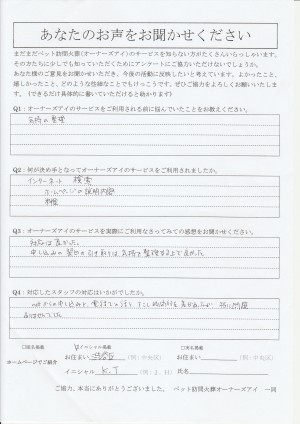 あなたのお声をお聞かせください
まだまだペット訪問火葬(オーナーズアイ)のサービスを知らない方がたくさんいらっしゃいます。
その方たちに少しでも知っていただくためにアンケートにご協力いただけないでしょうか。
あなた様のご意見をお聞かせいただき、今後の活動に反映したいと考えています。よかったこと、
嬉しかったこと、どのような些細なことでもけっこうです。ぜひご協力をよろしくお願いいたしま
す。(できるだけ具体的に書いていただけると助かります)
Q1:オーナーズアイのサービスをご利用される前に悩んでいたことをお教えください。
気持の整理
Q2:何が決め手となってオーナーズアイのサービスをご利用されましたか。
インターネット 検索
ホームページの説明内容
料金
Q3:オーナーズアイのサービスを実際にご利用なさってみての感想をお聞かせください。
対応は良かった。
申し込みの翌日の引き取りは、気持ち整理する上で良かった。
Q4:対応したスタッフの対応はいかがでしたか。
netからの申し込みと、電話での 特に問題
ありませんでした。
□匿名掲載 イニシャル掲載 □実名掲載
ホームページでご紹介 お住まい 渋谷区 (例:中央区) お住まい (例:中央区)
イニシャル K.T (例:I.H) 氏名
ご協力、本当にありがとうございました。 ペット訪問火葬オーナーズアイ 一同